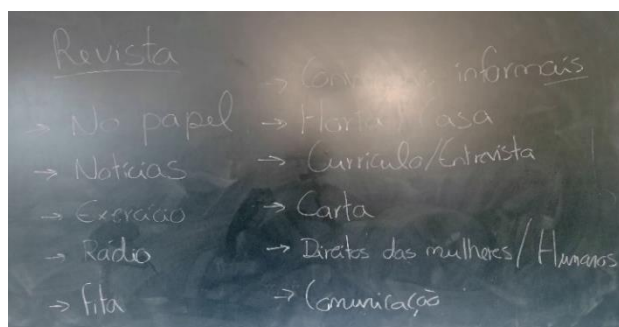 Revista
→ No papel
→ Notícias
→ Exercício
→ Rádio
→ Fita
→ informais
→ Horta
→ Currículo/Entrevista
→ Carta
→ Direitos das mulheres/Humanos
→ Comunicação